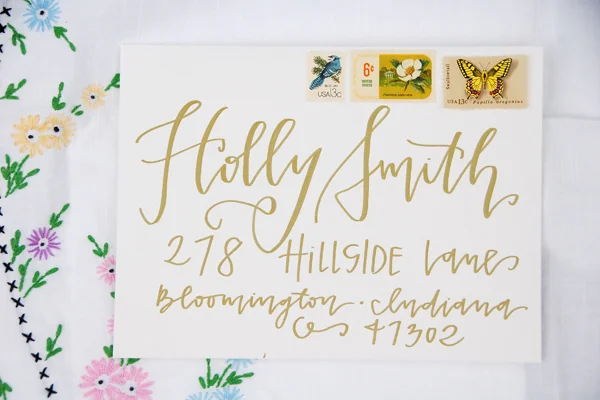 USA 13c
6¢
Southwestafr
USA 13c Papilio oregonius
Holly Smith
278 HillSIDE Lane
Bloomington · Indiana
47302